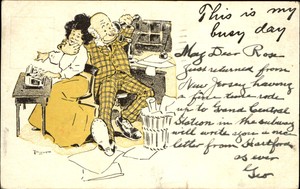 This is my
busy day
My Dear Rose
Just returned from
New Jersey, having
a fine time rode
up to Grand Central
Station in the subway
will write soon a
letter from Hartford
as ever
Geo